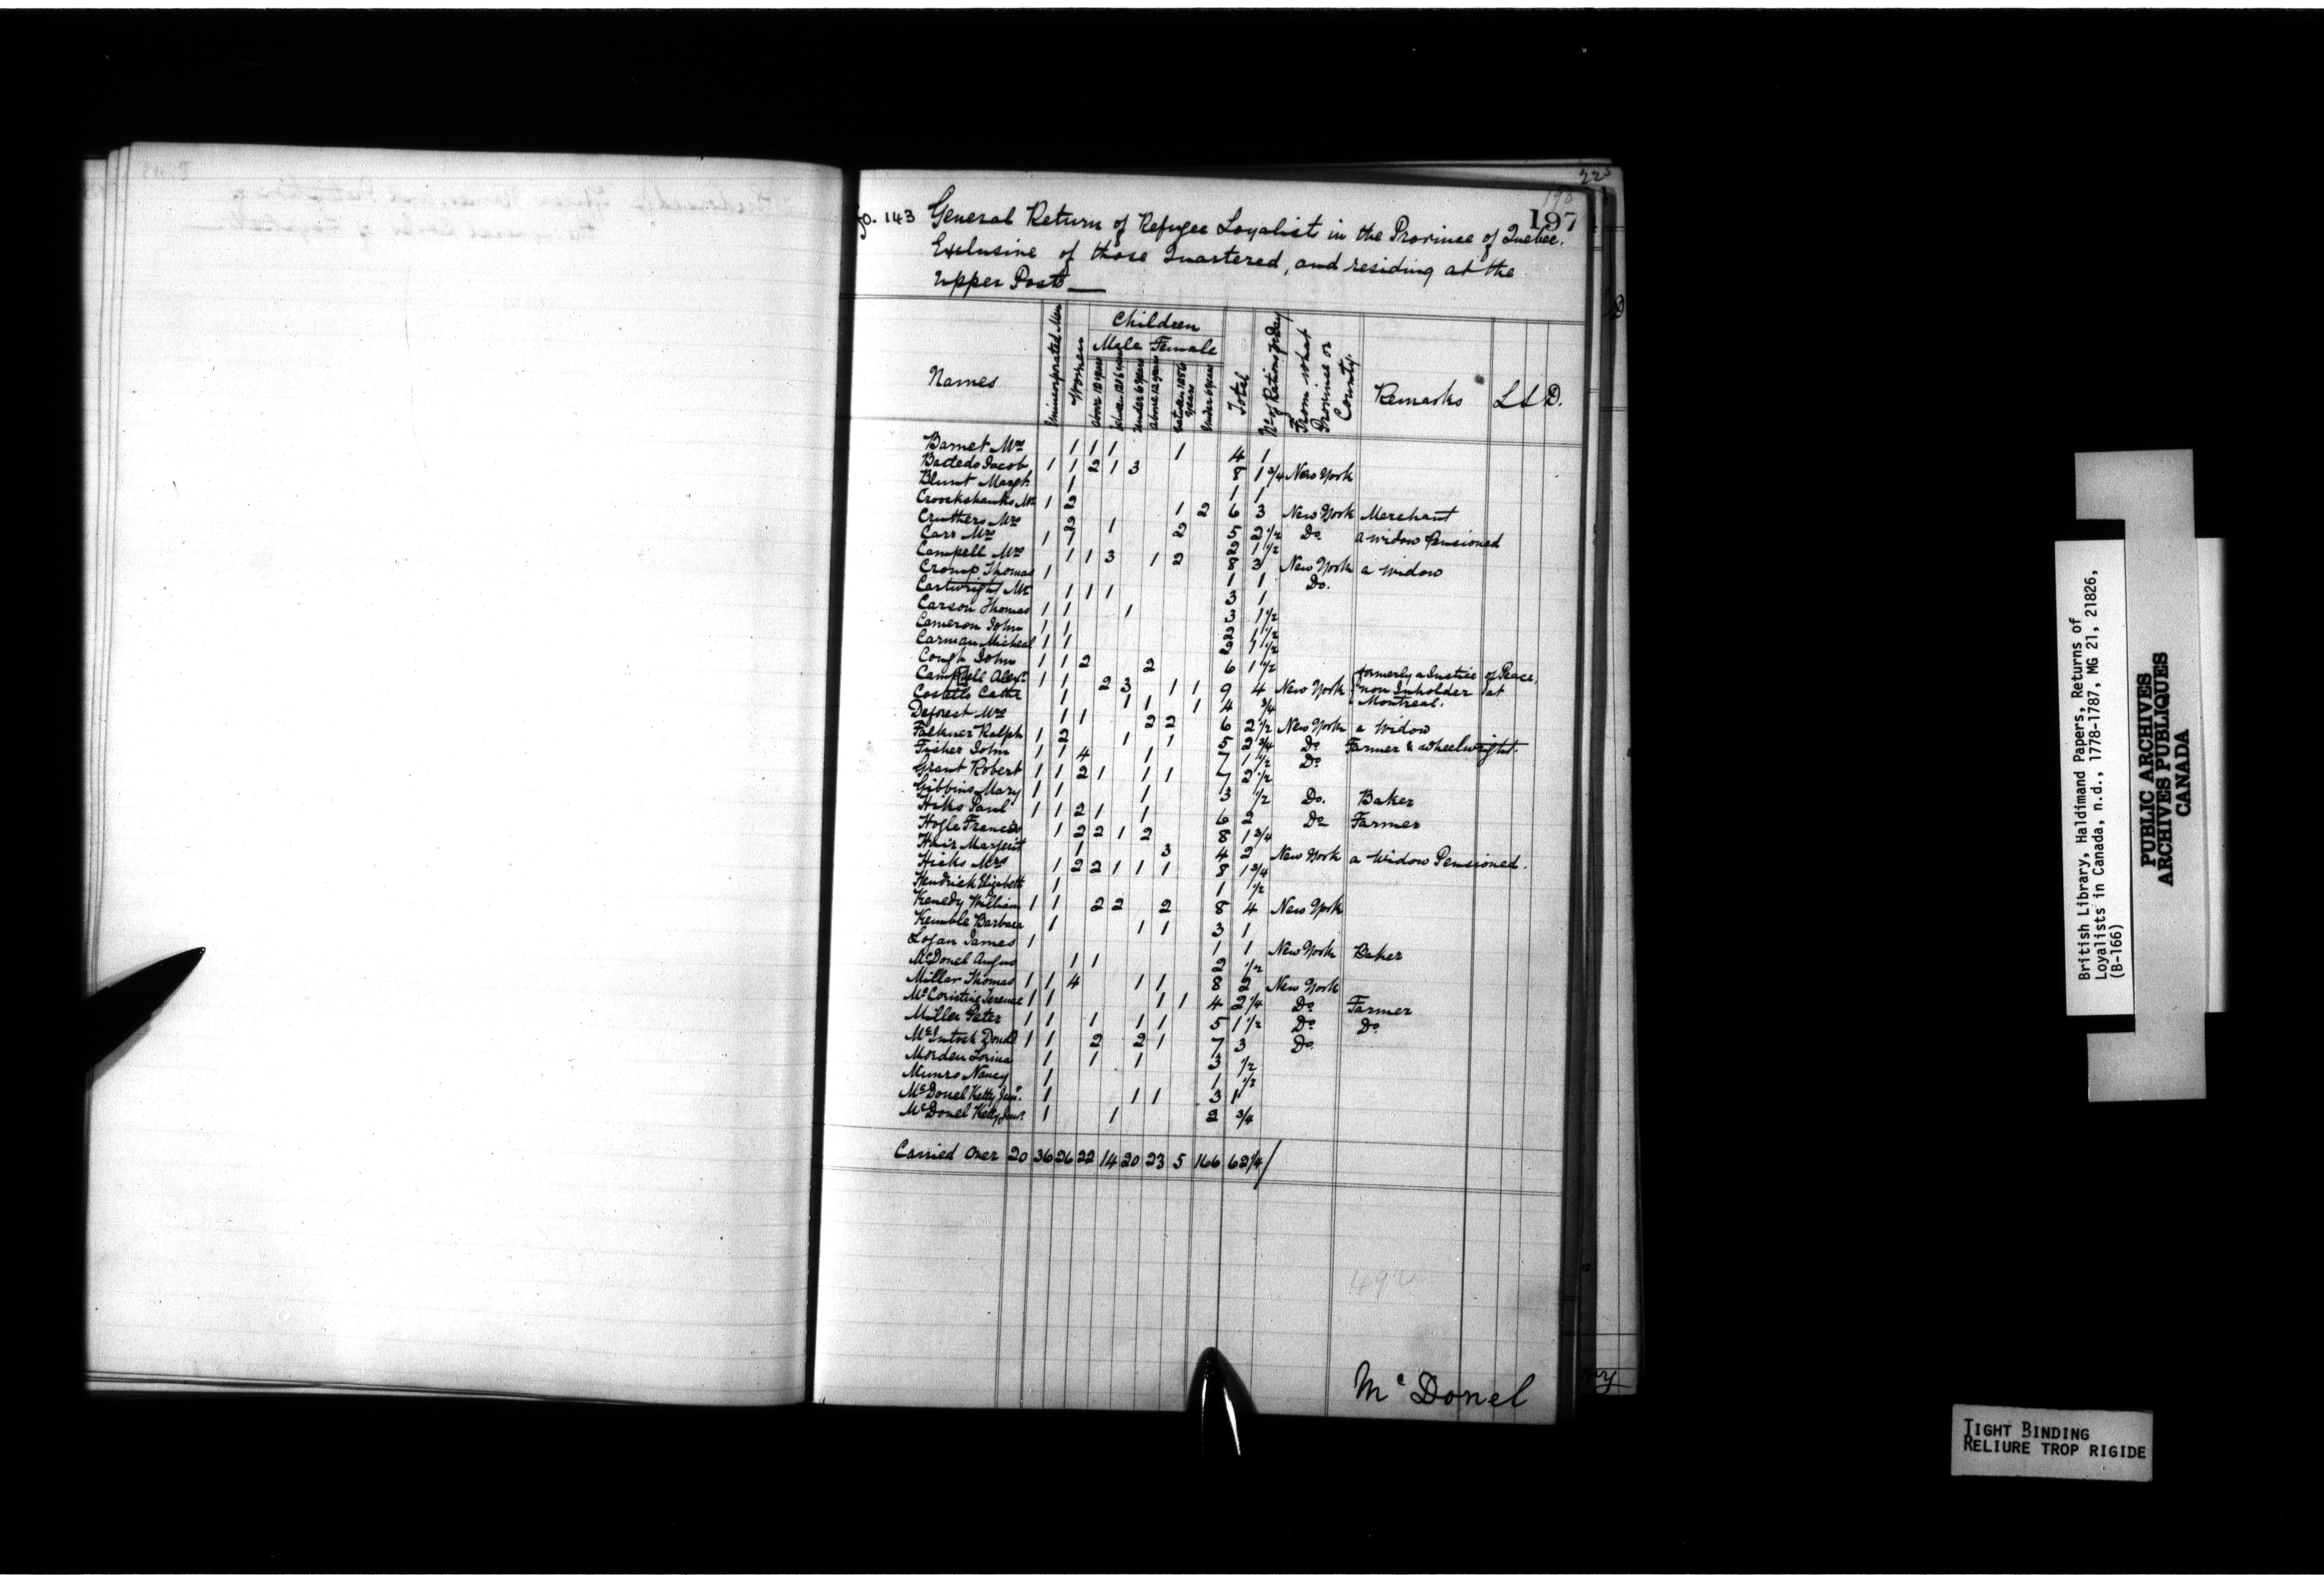 225
198
197
fo. 143 General Return of Refugee Loyalists in the Province of Quebec.
Exclusive of those Quartered, and residing at the
Upper Posts
Names
Unincorporated Men
Women
Children
Male Female
above 12 years
between 12 & 6 years
under 6 years
above 12 years
between 12 & 6 years
under 6 years
Total
No of Rations pr Day
From what Province or County.
Remarks
L S D.
Barnet Mrs 1 1 1 1 4 1
Jacob 1 1 2 1 3 8 1 3/4 New York
Blunt Margt 1 1 1
Crookshanks Mr 1 2 1 2 6 3 New York Merchant
Cruthers Mrs 2 1 2 5 2 1/2 Do a widow Pensioned
Carr Mrs 1 1 2 1 1/2
Campell Mrs 1 1 3 1 2 8 3 New York a Widow
Thomas 1 1 1 Do.
Cartwright Mr 1 1 1 3 1
Carson Thomas 1 1 1 3 1 1/2
Cameron John 1 1 2 1 1/2
Carman Micheal 1 1 2 1 1/2
John 1 1 2 2 6 1 1/2
Campbell Alexr 1 1 2 3 1 1 9 4 New York formerly a Justice of Peace, now Inholder at Montreal.
Costello Cathe 1 1 1 1 4 3/4
Deforest Mrs 1 1 2 2 6 2 1/2 New York a Widow
Falkner Ralph 1 2 1 1 5 2 3/4 Do Farmer & wheelwright.
Fisher John 1 1 4 1 7 1 1/2 Do
Grant Robert 1 1 2 1 1 1 7 2 1/2
Gibbins Mary 1 1 1 3 1/2 Do. Baker
Hiks Paul 1 1 2 1 1 6 2 Do Farmer
Hogle Francis 1 2 2 1 2 8 1 3/4
Margerit 1 3 4 2 New York a Widow Pensioned.
Hicks Mrs 1 2 2 1 1 1 8 1 3/4
Hendrick Elizabeth 1 1 1/2
Kenedy William 1 1 2 2 2 8 4 New York
Kemble Barbara 1 1 1 3 1
Logan James 1 1 1 New York Baker
McDonel Angus 1 1 2 1/2
Miller Thomas 1 1 4 1 1 8 2 New York
McCoristine Terence 1 1 1 1 4 2 1/4 Do Farmer
Miller Peter 1 1 1 1 1 5 1 1/2 Do Do
McIntosh Donald 1 1 2 2 1 7 3 Do
Morden 1 1 1 3 1/2
Munro Nancy 1 1 1/2
McDonel Ketty Senr. 1 1 1 3 1
McDonel Ketty Junr. 1 1 2 3/4
Carried Over 20 36 26 22 14 20 23 5 166 62 1/4
492
Mc Donel
British Library, Haldimand Papers, Returns of
Loyalists in Canada, n.d., 1778-1787, MG 21, 21826,
(B-166)
PUBLIC ARCHIVES
ARCHIVES PUBLIQUES
CANADA
TIGHT BINDING
RELIURE TROP RIGIDE